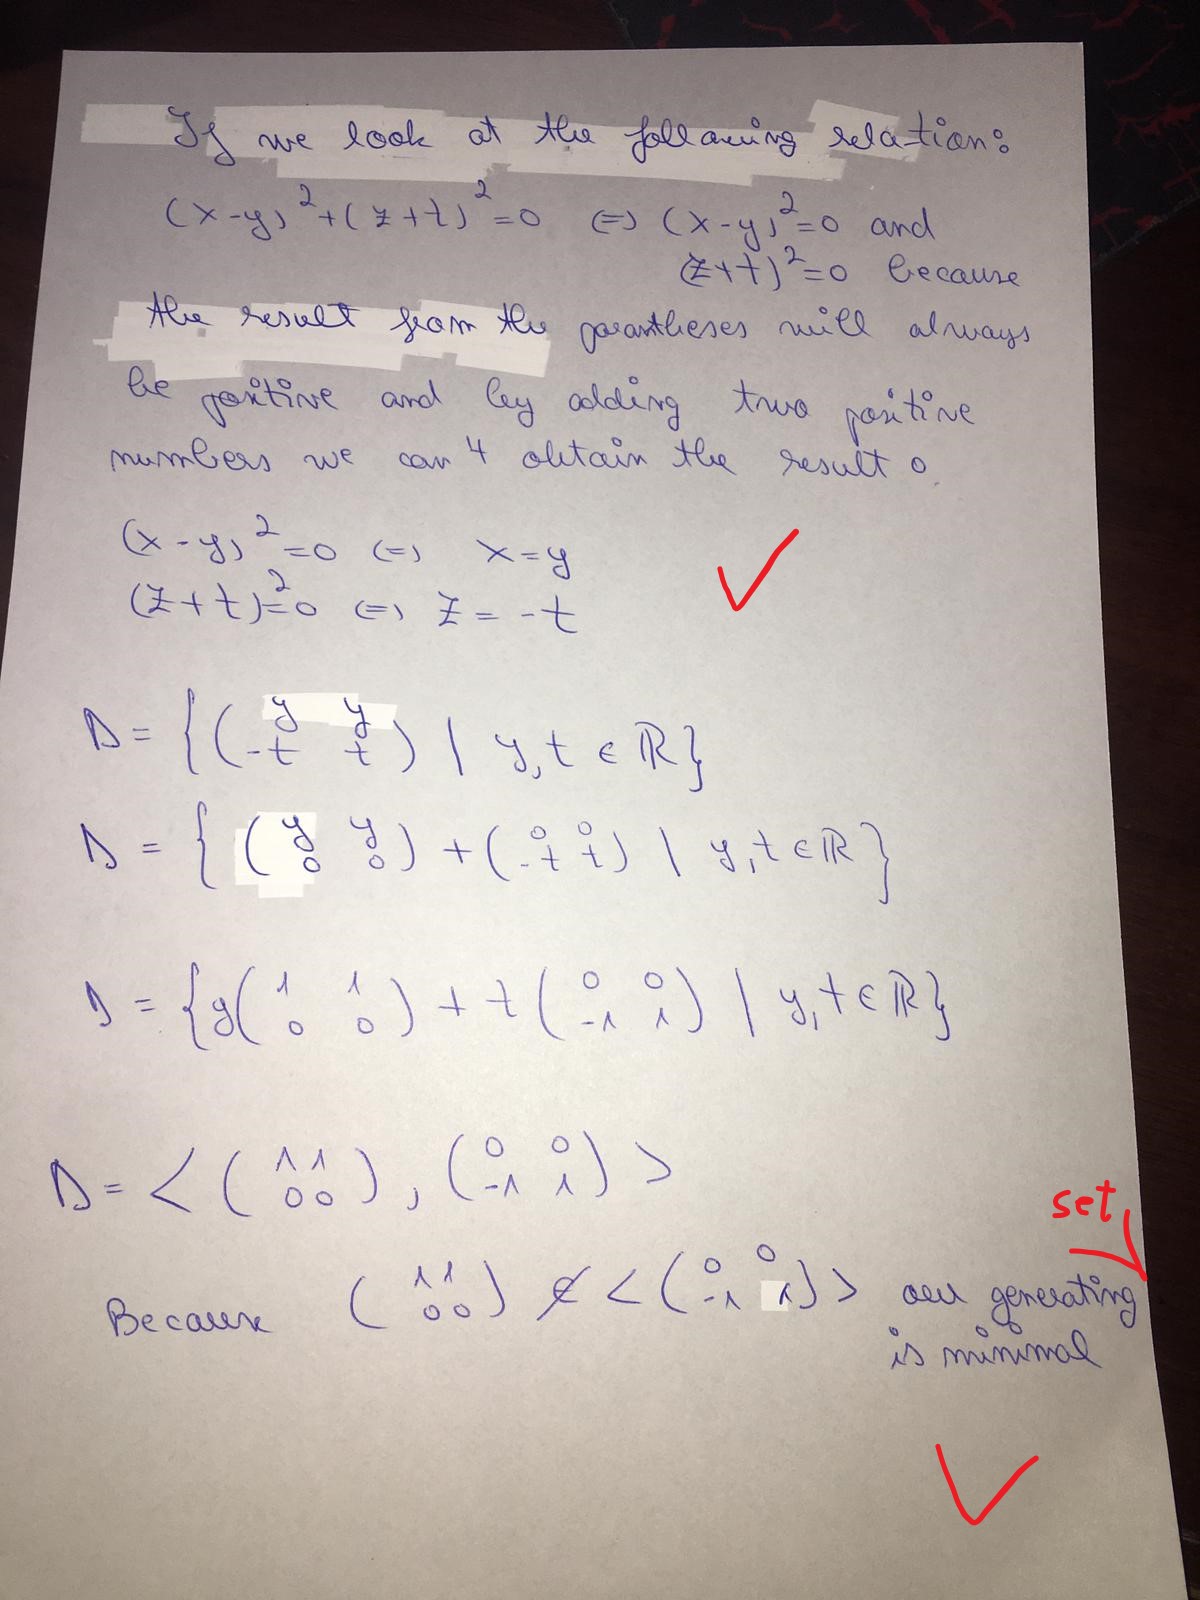 If we look at the following relation:
(x-y)²+(z+t)²=0 (=) (x-y)²=0 and
(z+t)²=0 because
the result from the parantheses will always
be positive and by adding two positive
numbers we can 4 obtain the result 0.
(x-y)²=0 (=) x=y
(z+t)²=0 (=) z=-t
D = {(y y
-t t) | y,t ∈ ℝ}
D = {(y y
0 0) + (0 0
-t t) | y,t ∈ ℝ}
D = {y(1 1
0 0) + t(0 0
-1 1) | y,t ∈ ℝ}
D = <(1 1
0 0), (0 0
-1 1)>
set
Because (1 1
0 0) ∉ <(0 0
-1 1)> our generating
is minimal